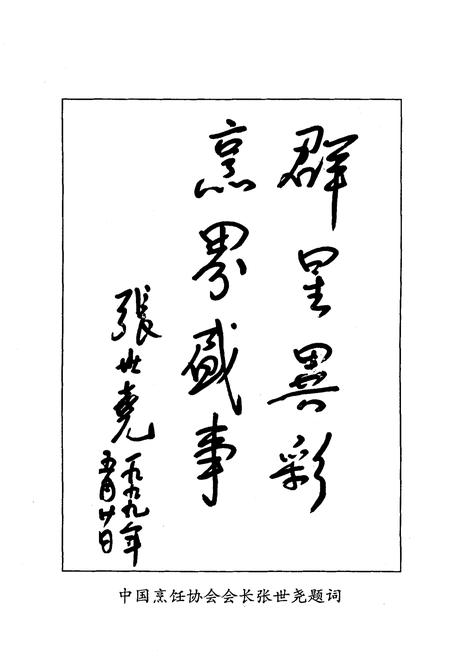 群星異彩
烹界盛事
張世尭
一九九九年
五月廿日
中国烹饪协会会长张世尧题词